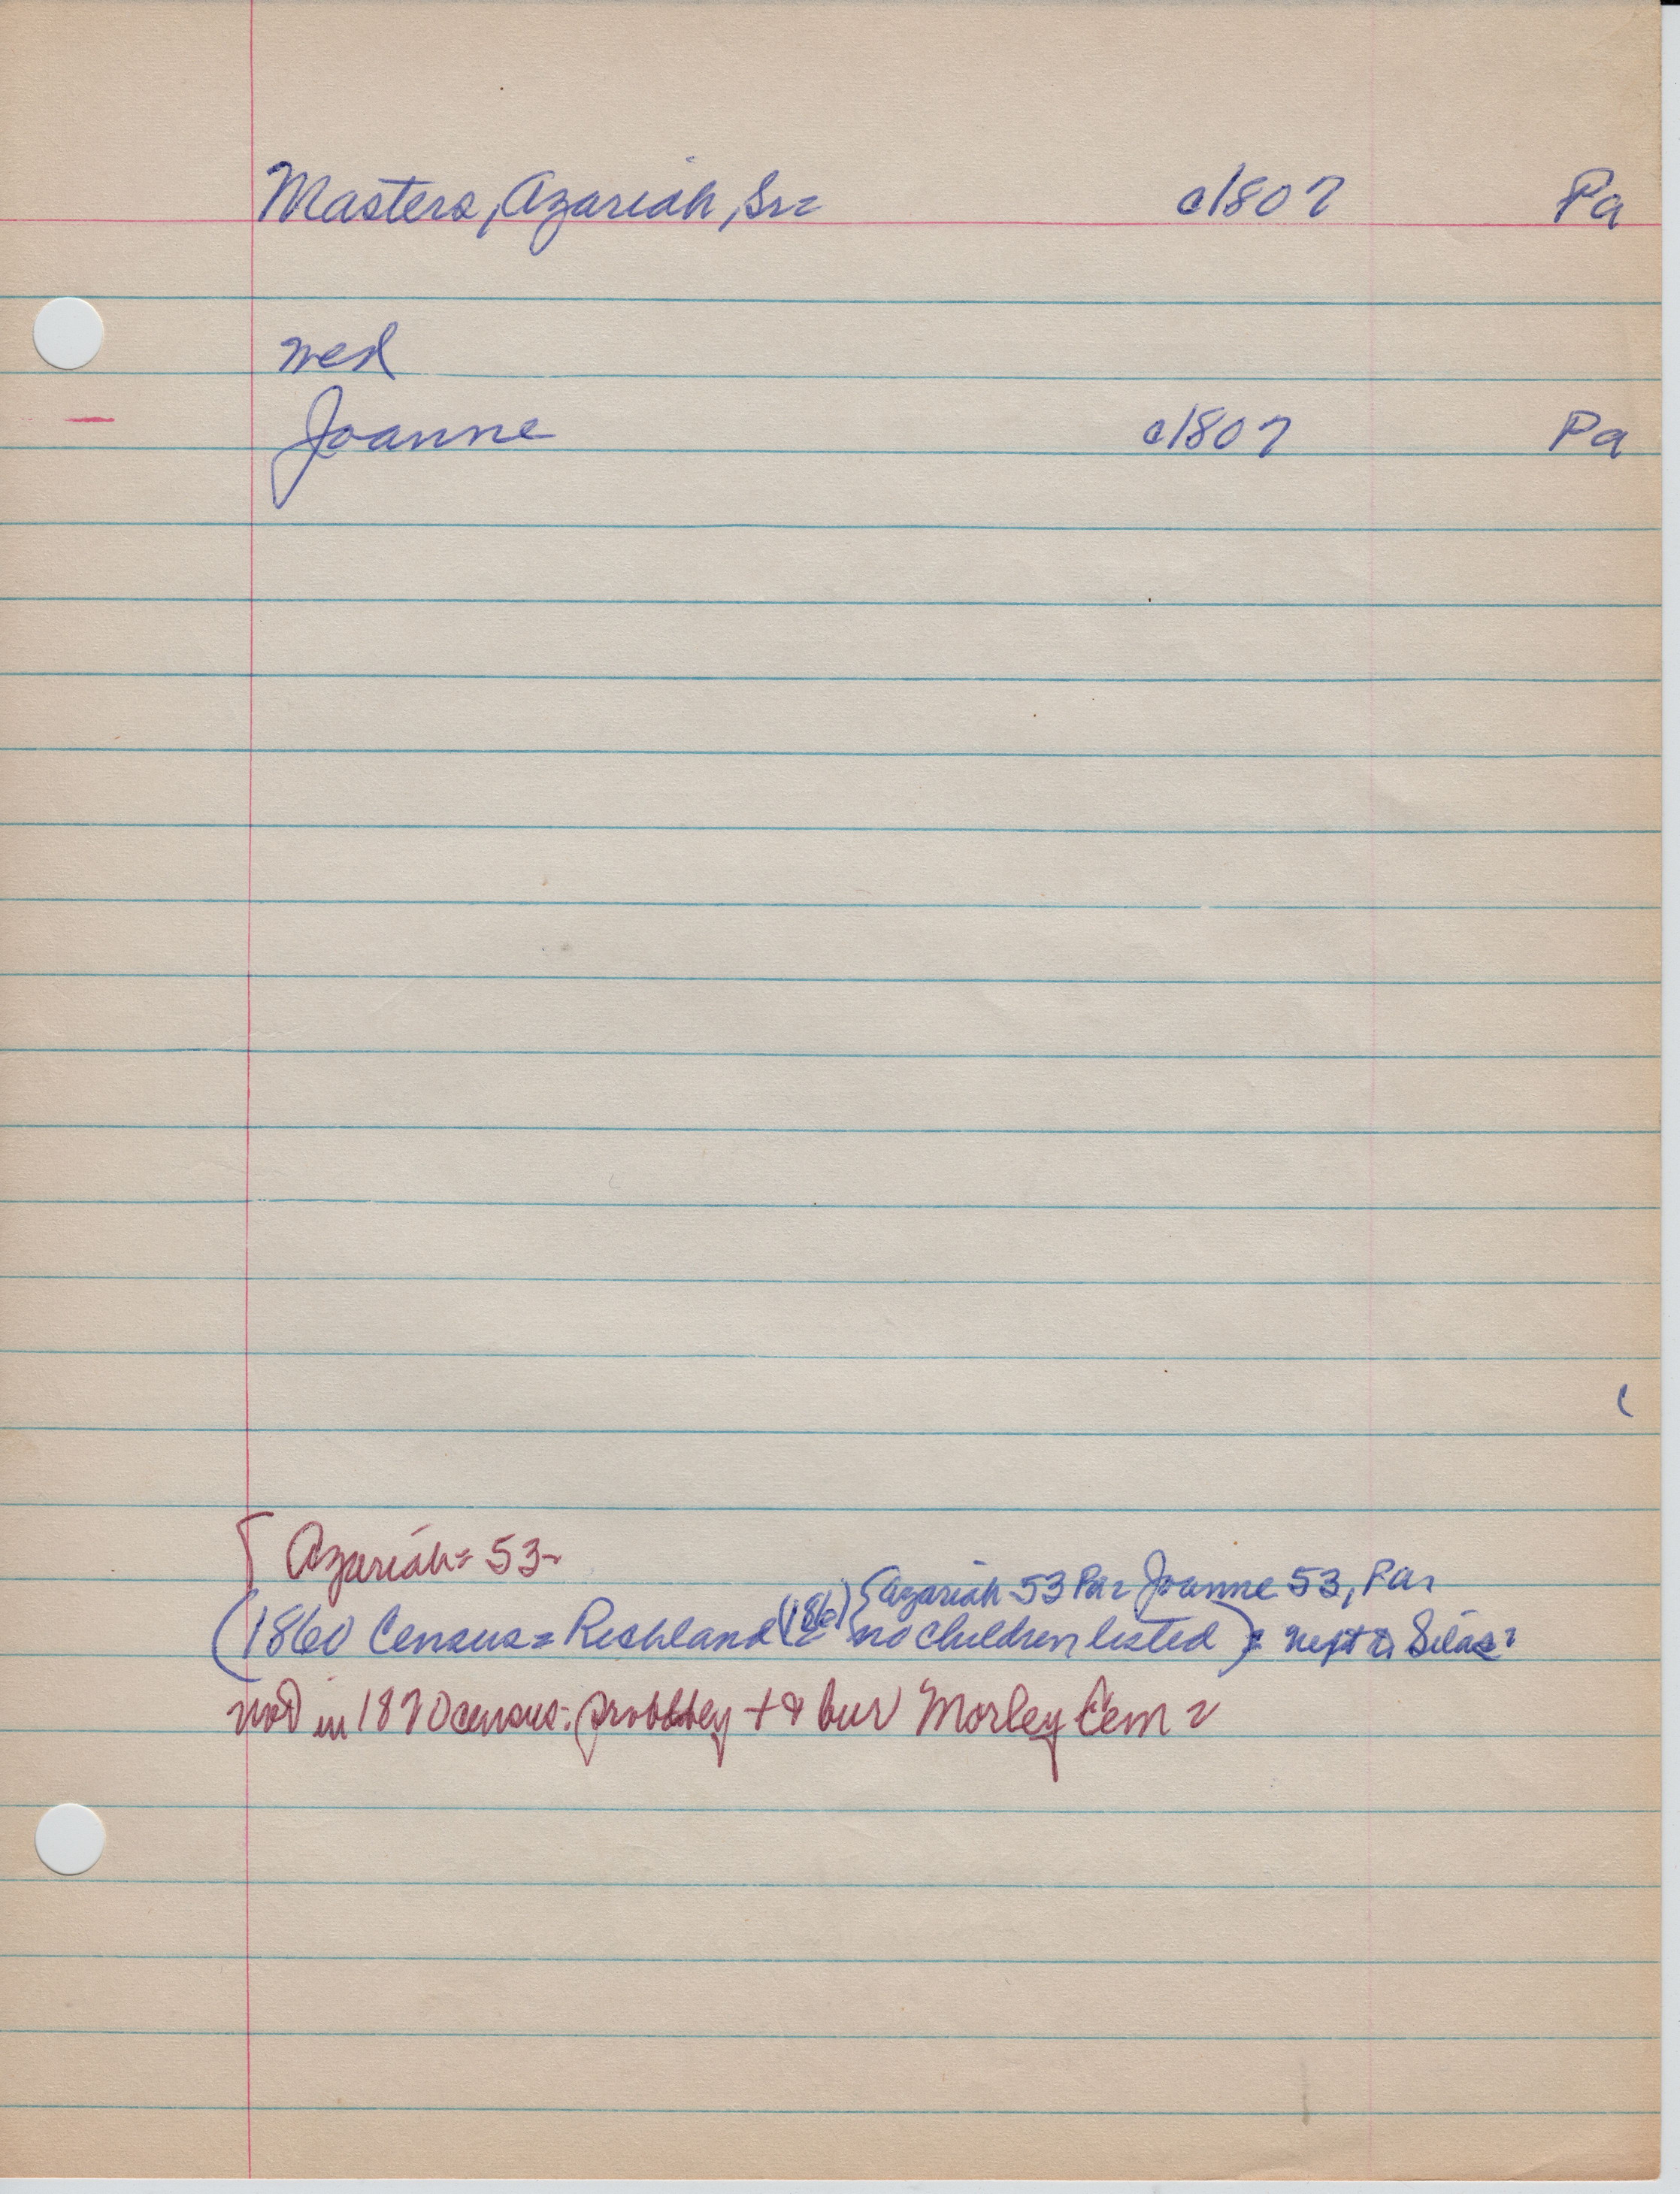 Masters, Azariah, Sr= c1807 Pa
wed
Joanne c1807 Pa
Azariah= 53-
{Azariah 53 Pa= Joanne 53, Pa,
(1860 Census= Richland (186) no children listed) next to Silas=
not in 1870 census: probabley + & bur Morley Cem=